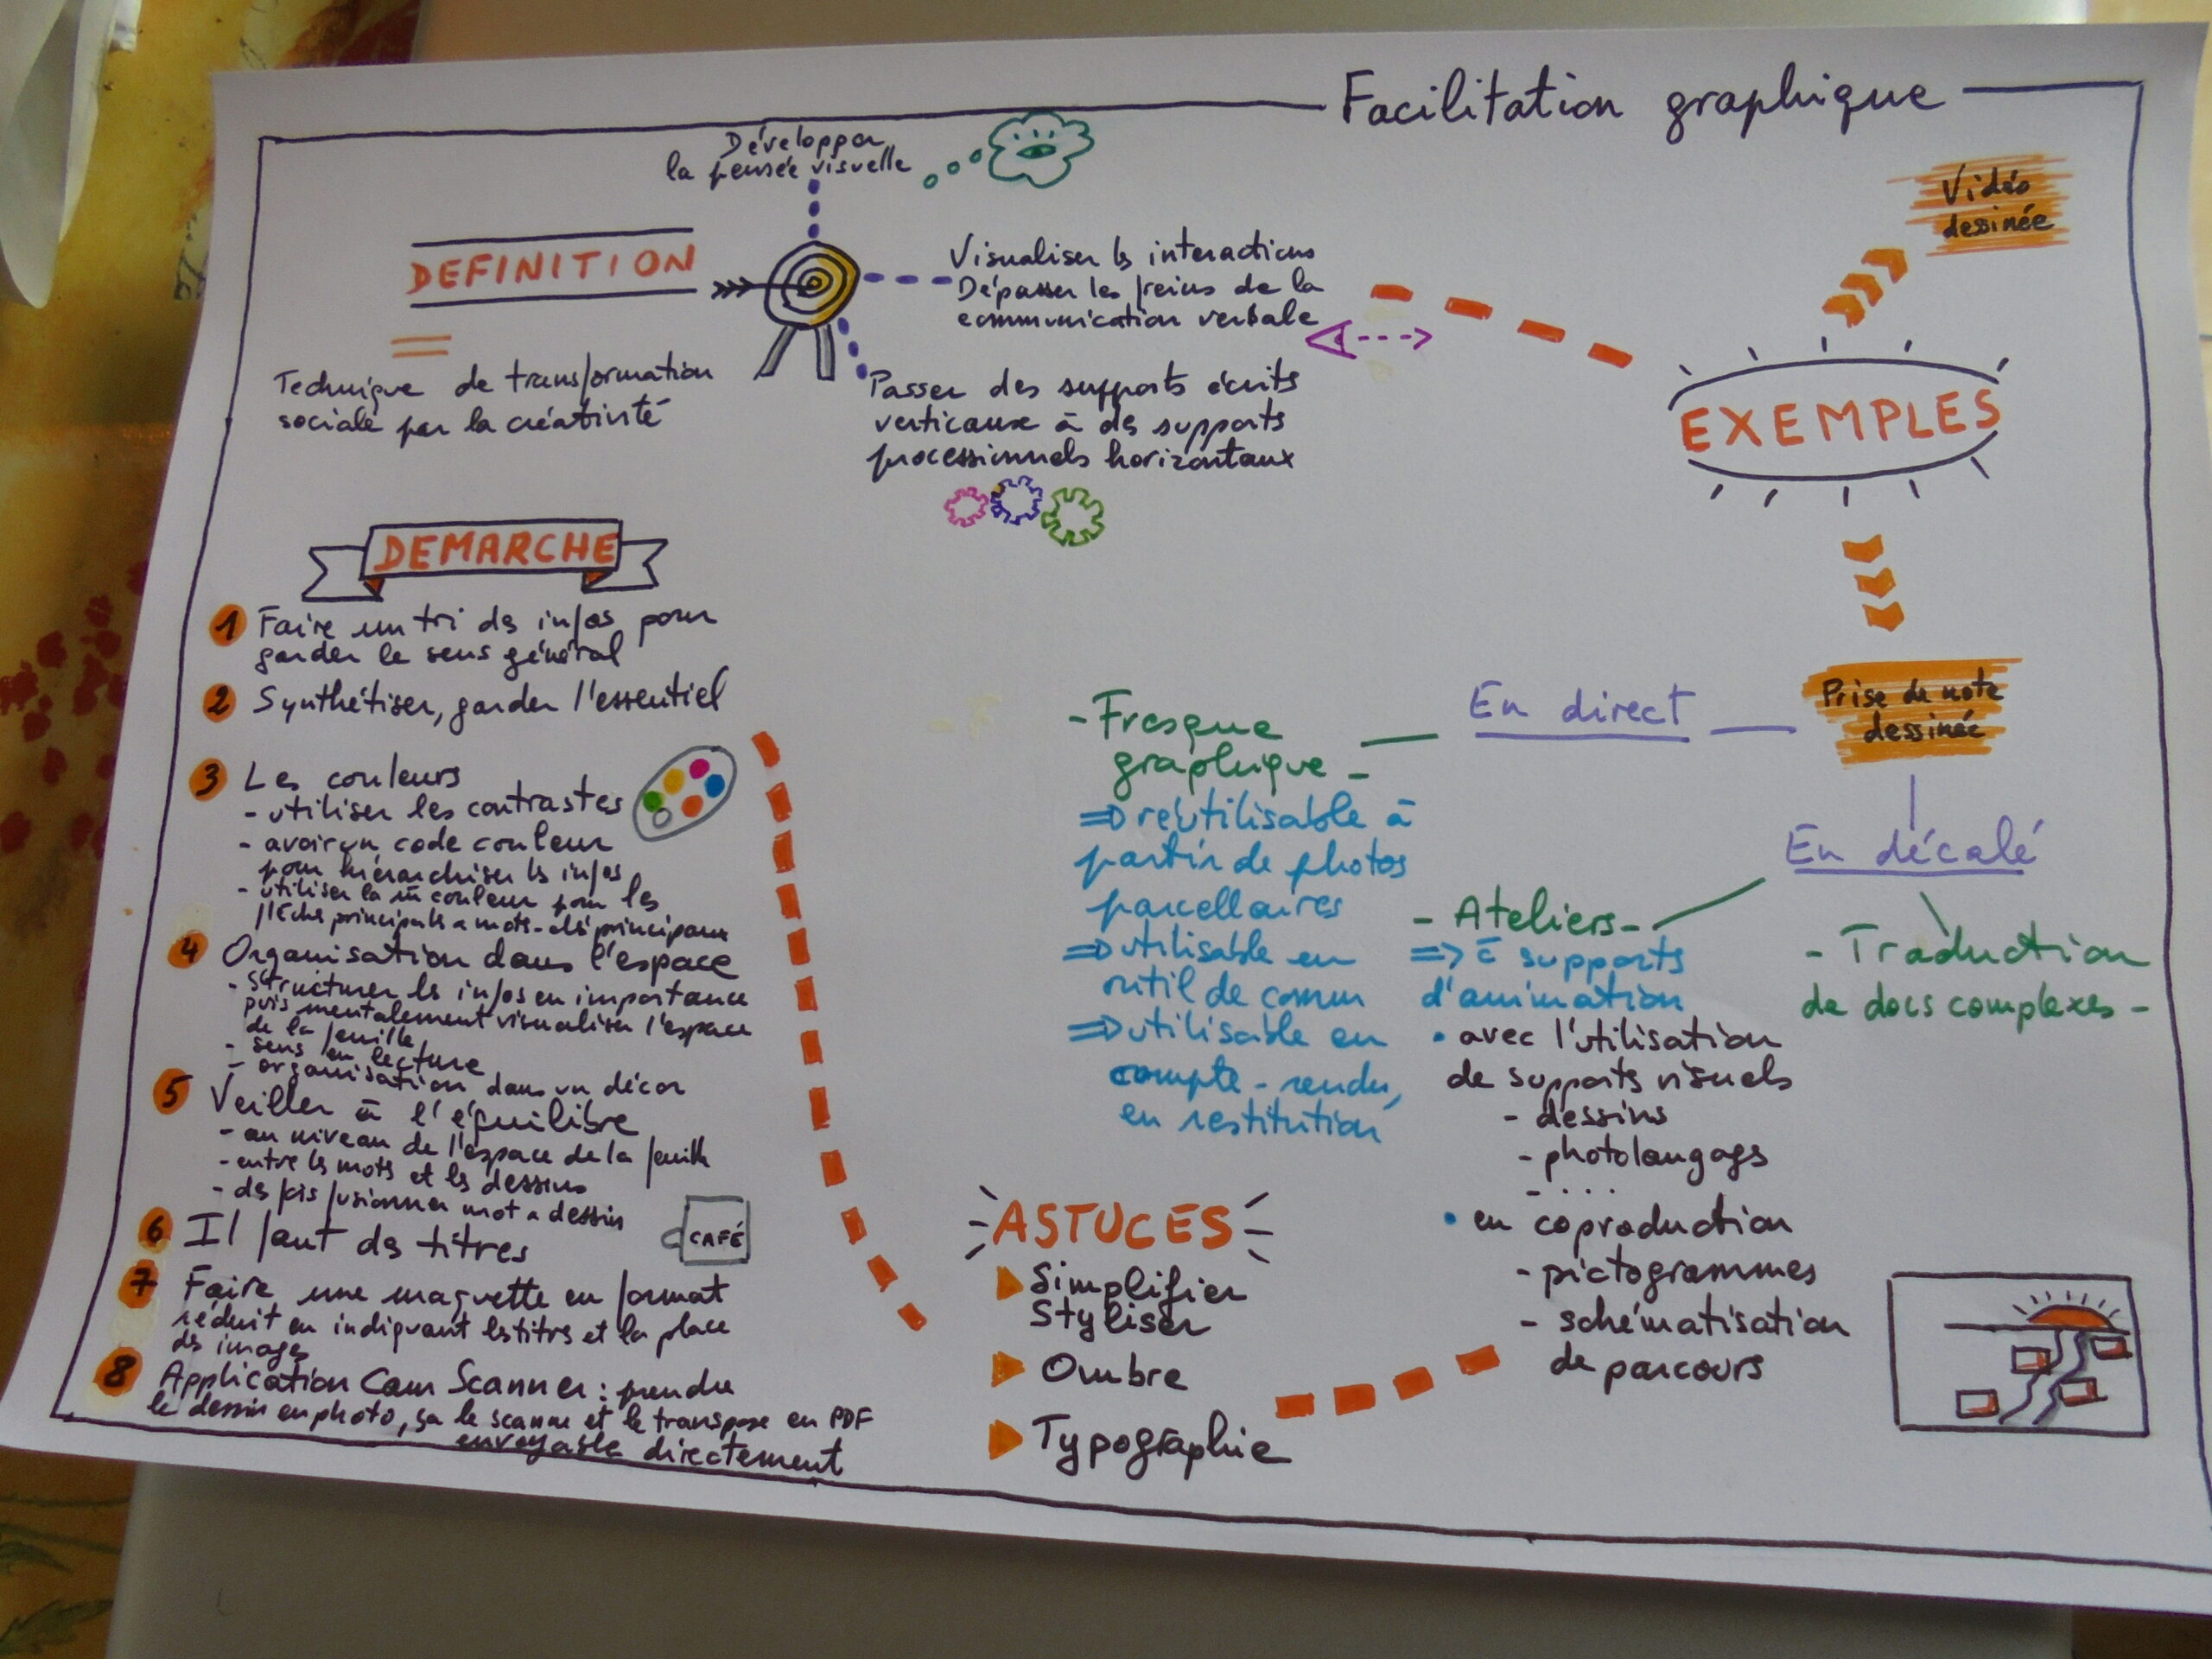 Facilitation graphique
DEFINITION
=
Technique de transformation
sociale par la créativité
Développer
la pensée visuelle
Visualiser les interactions
Dépasser les freins de la
communication verbale
Passer des supports écrits
verticaux à des supports
processionnels horizontaux
DEMARCHE
1 Faire un tri des infos pour
garder le sens général
2 Synthétiser, garder l'essentiel
3 Les couleurs
- utiliser les contrastes
- avoir un code couleur
pour hiérarchiser les infos
- utiliser la m̄ couleur pour les
flèches principales & mots-clés principaux
4 Organisation dans l'espace
- structurer les infos en importance
puis mentalement visualiser l'espace
de la feuille
- sens en lecture
- organisation dans un décor
5 Veiller à l'équilibre
- au niveau de l'espace de la feuille
- entre les mots et les dessins
- des fois fusionner mot & dessin
CAFÉ
6 Il faut des titres
7 Faire une maquette en format
réduit en indiquant les titres et la place
des images
8 Application Cam Scanner : prendre
le dessin en photo, ça le scanne et le transpose en PDF
envoyable directement
ASTUCES
Simplifier
Styliser
Ombre
Typographie
EXEMPLES
Vidéo
dessinée
Prise de note
dessinée
En direct
- Fresque
graphique -
=> réutilisable à
partir de photos
parcellaires
=> utilisable en
outil de comm
=> utilisable en
compte-rendu,
en restitution
En décalé
- Ateliers -
=> c̄ supports
d'animation
• avec l'utilisation
de supports visuels
- dessins
- photolangages
- ...
• en coproduction
- pictogrammes
- schématisation
de parcours
- Traduction
de docs complexes -